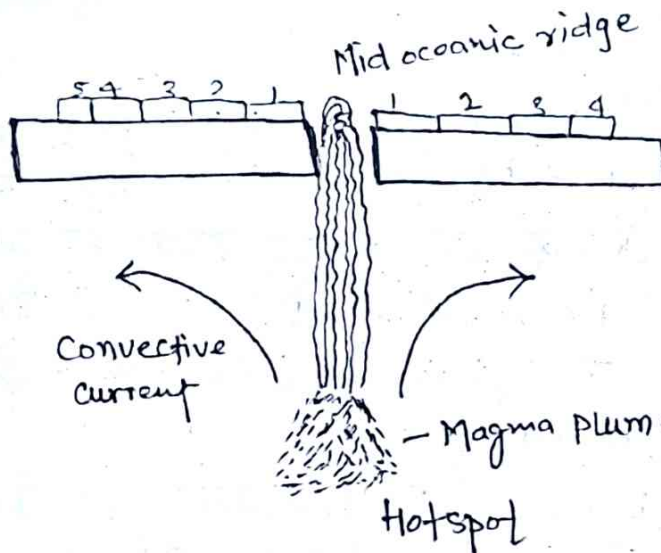 Mid ocoanic ridge
5 4 3 2 1
1 2 3 4
Convective
current
Magma plum
Hotspot